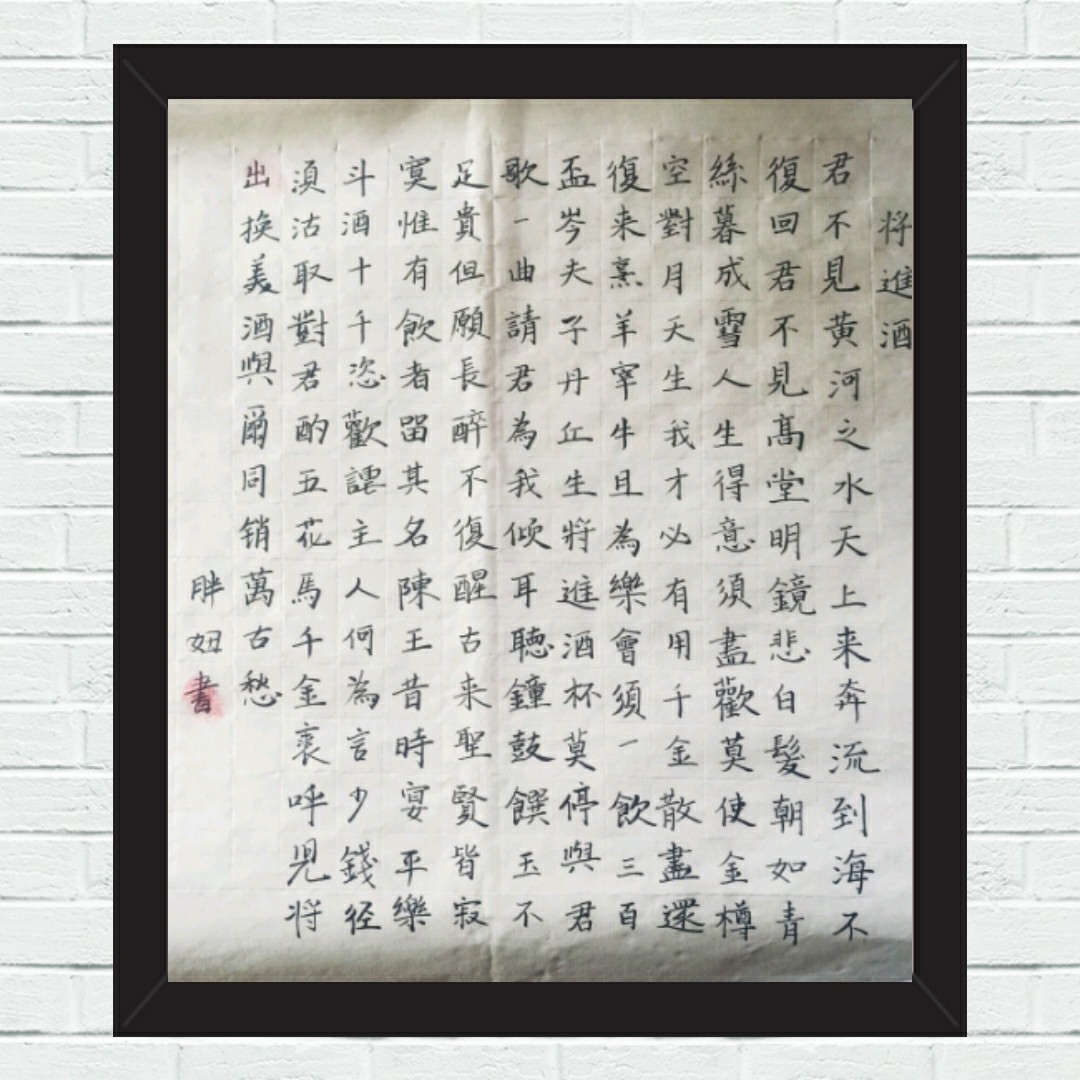 将進酒
君不見黄河之水天上来奔流到海不
復回君不見髙堂明鏡悲白髮朝如青
絲暮成雪人生得意須盡歡莫使金樽
空對月天生我才必有用千金散盡還
復来烹羊宰牛且為樂會須一飲三百
盃岑夫子丹丘生將進酒杯莫停與君
歌一曲請君為我傾耳聽鐘鼓饌玉不
足貴但願長醉不復醒古来聖賢皆寂
寞惟有飲者留其名陳王昔時宴平樂
斗酒十千恣歡謔主人何為言少錢径
須沽取對君酌五花馬千金裘呼児将
出换美酒與爾同销萬古愁
胖妞書